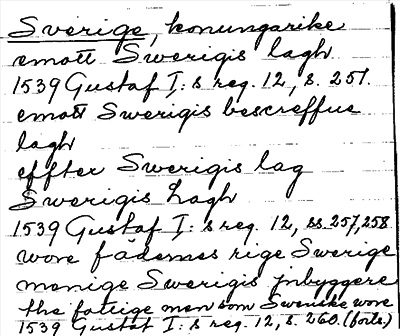 Sverige, konungarike
emott Swerigis lagh
1539 Gustaf I:s reg. 12, s. 257.
emott Swerigis bescreffne
lagh
effter Swerigis lag
Swerigis Lagh
1539 Gustaf I:s reg. 12, ss. 257, 258
wore fädernes rige Swerige
menige Swerigis jnbyggere
the fattige men som Swenske wore
1539 Gustaf I:s reg. 12, s. 260. (forts.)